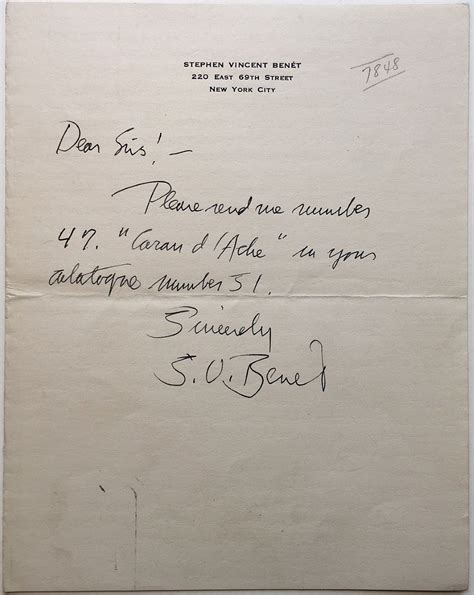 STEPHEN VINCENT BENÉT
220 EAST 69TH STREET
NEW YORK CITY
7848
Dear Sirs! —
Please send me number
47. "Caran d'Ache" in your
catalogue number 51.
Sincerely
S. V. Benét